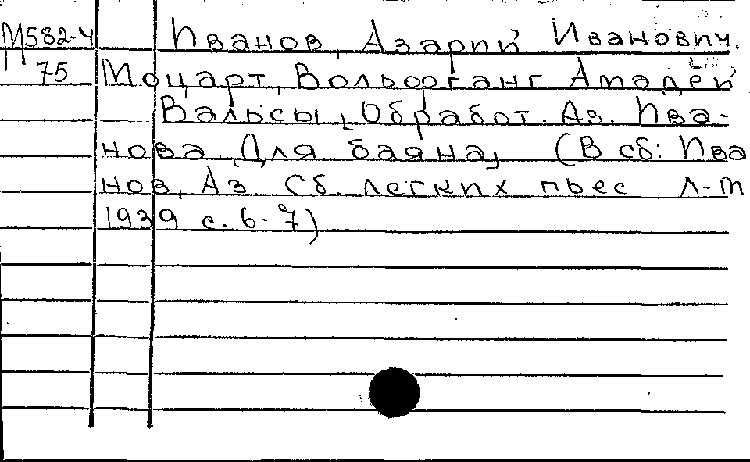 М582-4 Иванов, Азарий Иванович.
75 Моцарт, Вольфганг Амадей
Вальсы, Обработ. Аз. Ива-
нова Для баяна, (В сб: Ива
нов, Аз. Сб. легких пьес Л-М
1939 с. 6-7)